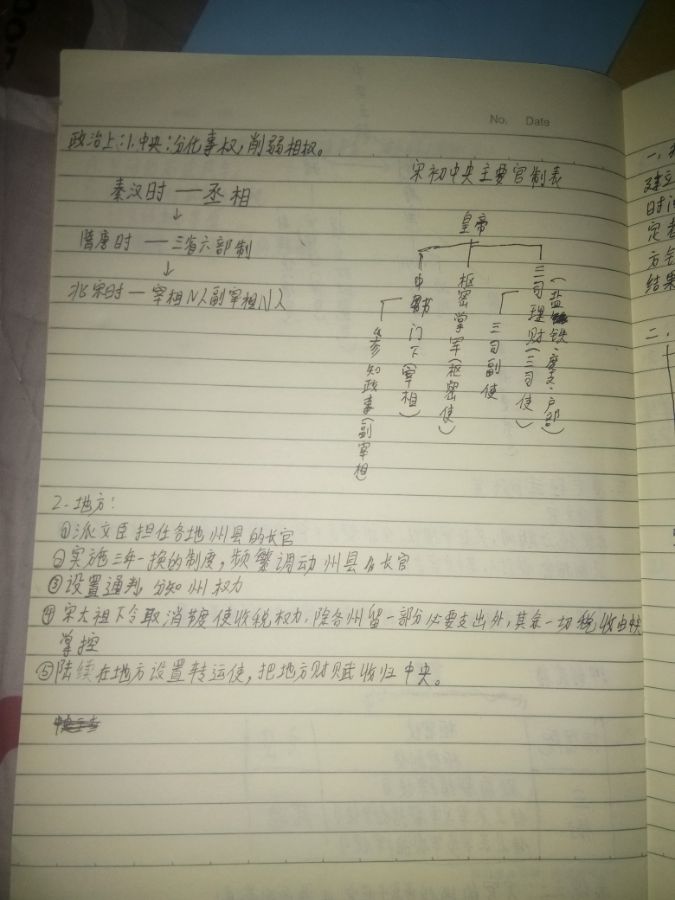 No.    Date
政治上:1.中央:分化事权,削弱相权。
宋初中央主要官制表
秦汉时——丞相
↓
隋唐时——三省六部制
↓
北宋时—宰相N人副宰相N人
皇帝
中书门下(宰相)
参知政事(副宰相
枢密掌军(枢密使)
三司副使
三司理财(三司使)
(盐铁·度支·户部)
2.地方:
①派文臣担任各地州县的长官
②实施三年一换的制度,频繁调动州县的长官
③设置通判,分知州权力
④宋太祖下令取消节度使收税权力.除各州留一部分必要支出外,其余一切税收由中央
掌控
⑤陆续在地方设置转运使,把地方财赋收归中央。
一、
建立
时间
定都
方针
结果
二、